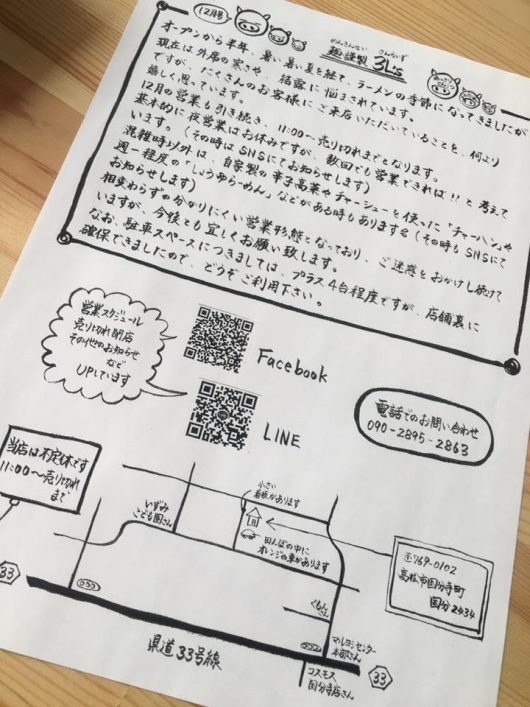 12月号
がんさんせい さんらいず
麺謹製 3L's
オープンから半年、暑い暑い夏を経て、ラーメンの季節になってきましたが
現在は外席の寒さや、結露に悩まされています。
ですが、たくさんのお客様にご来店いただいていることを、何より
嬉しく思っています。
12月の営業も引き続き、11:00〜売り切れまでとなります。
基本的に夜営業はお休みですが、数回でも営業できれば!!と考えて
います。(その時はSNSにてお知らせします)
混雑時以外は、自家製の辛子高菜やチャーシューを使った「チャーハン」や
週一程度の「しょうゆらーめん」などがある時もあります(その時もSNSにて
お知らせします)
相変わらずの分かりにくい営業形態となっており、ご迷惑をおかけし続けて
いますが、今後とも宜しくお願い致します。
なお、駐車スペースにつきましては、プラス4台程度ですが、店舗裏に
確保できましたので、どうぞご利用下さい。
営業スケジュール
売り切れ閉店
その他のお知らせ
など
UPしています
Facebook
LINE
電話でのお問い合わせ
090-2895-2863
当店は不定休です
11:00〜売り切れ
まで
いずみ
こども園さん
小さい
看板があります
田んぼの中に
オレンジの車があります
〒769-0102
高松市国分寺町
国分2434
くもん
さん
マルヨシセンター
本部さん
コスモス
国分寺店さん
県道33号線
33
33